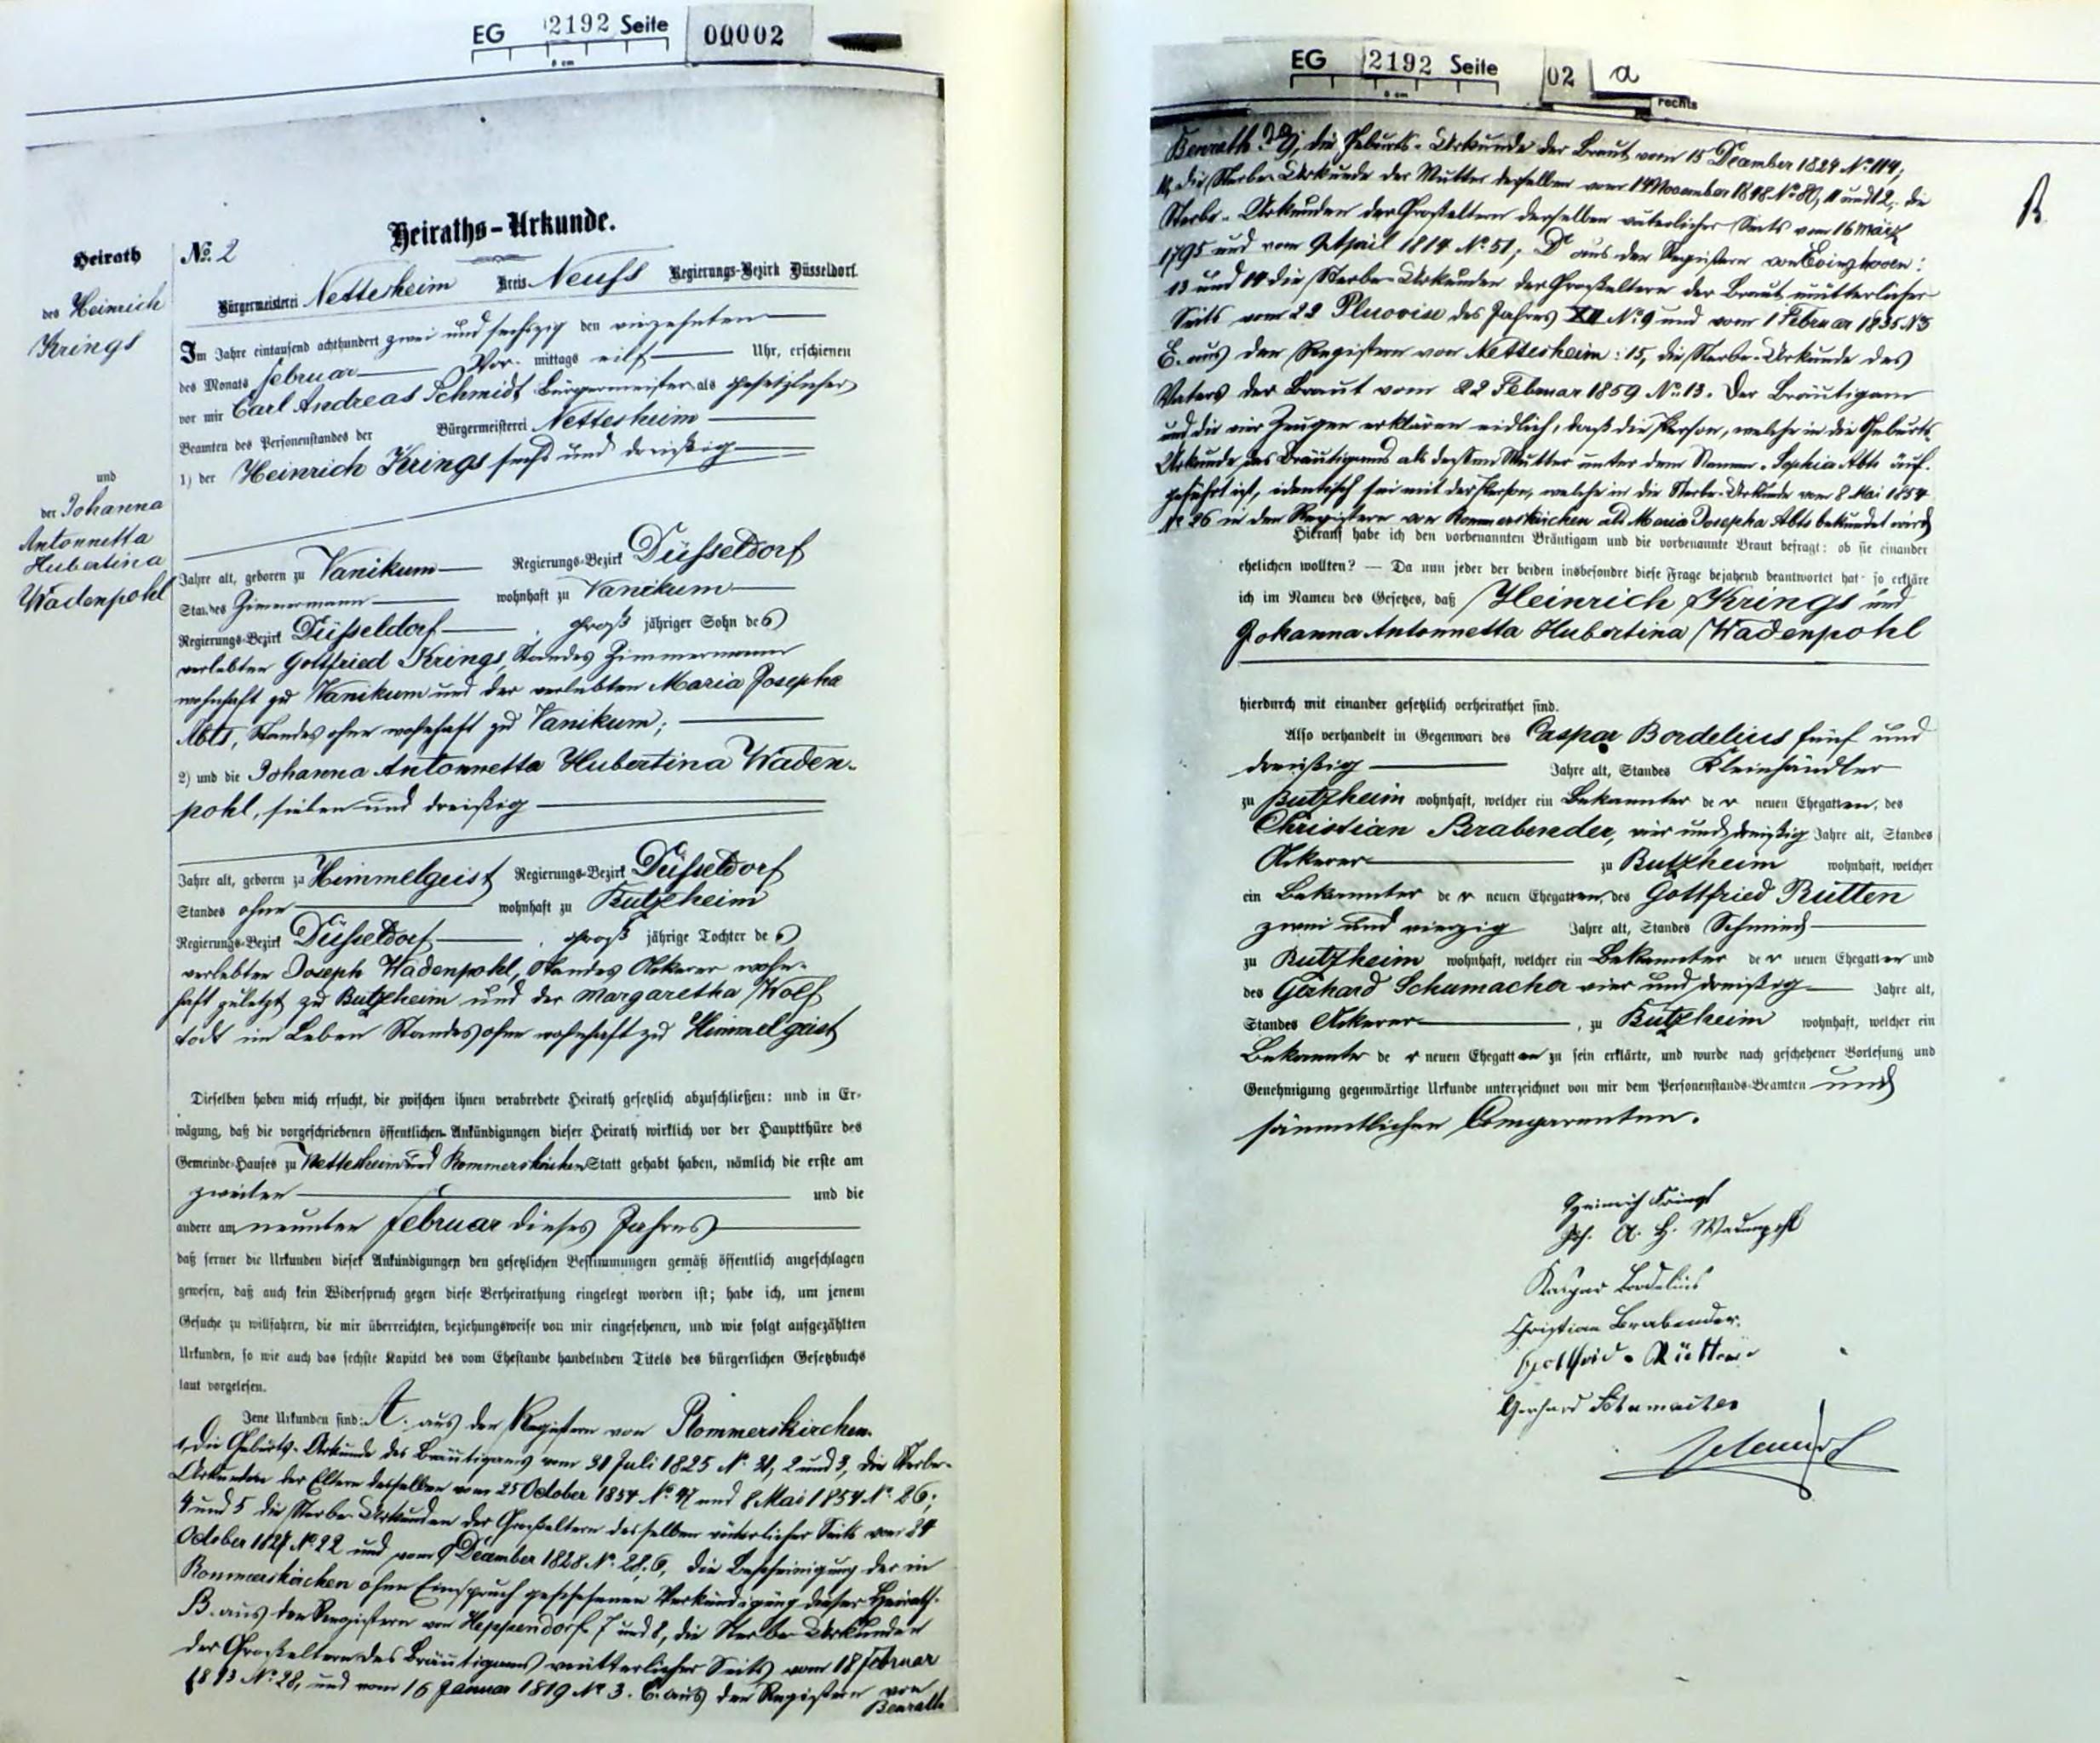 EG 2192 Seite 00002
8 cm
Heiraths-Urkunde.
Heirath
des Heinrich
Krings
und
der Johanna
Antonnetta
Hubertina
Wadenpohl
No. 2
Bürgermeisterei Nettesheim Kreis Neuss Regierungs-Bezirk Düsseldorf.
Im Jahre eintausend achthundert zwei und sechszig den vierzehnten
des Monats Februar Vor mittags eilf Uhr, erschienen
vor mir Carl Andreas Schmidt Bürgermeister als gesetzlicher
Beamten des Personenstandes der Bürgermeisterei Nettesheim
1) der Heinrich Krings sechs und dreißig
Jahre alt, geboren zu Vanikum Regierungs-Bezirk Düsseldorf
Standes Zimmermann wohnhaft zu Vanikum
Regierungs-Bezirk Düsseldorf, groß jähriger Sohn des
verlebten Gottfried Krings, Standes Zimmermann
wohnhaft zu Vanikum und der verlebten Maria Josepha
Abts, Standes ohne wohnhaft zu Vanikum;
2) und die Johanna Antonnetta Hubertina Waden-
pohl, sieben und dreißig
Jahre alt, geboren zu Himmelgeist Regierungs-Bezirk Düsseldorf
Standes ohne wohnhaft zu Butzheim
Regierungs-Bezirk Düsseldorf, groß jährige Tochter des
verlebten Joseph Wadenpohl, Standes Ackerer wohn-
haft zuletzt zu Butzheim und der Margaretha Wolf
todt im Leben Standes ohne wohnhaft zu Himmelgeist
Dieselben haben mich ersucht, die zwischen ihnen verabredete Heirath gesetzlich abzuschließen: und in Er-
wägung, daß die vorgeschriebenen öffentlichen Ankündigungen dieser Heirath wirklich vor der Hauptthüre des
Gemeinde-Hauses zu Nettesheim und Rommerskirchen Statt gehabt haben, nämlich die erste am
zweiten und die
andere am neunten Februar dieses Jahres
daß ferner die Urkunden dieser Ankündigungen den gesetzlichen Bestimmungen gemäß öffentlich angeschlagen
gewesen, daß auch kein Widerspruch gegen diese Verheirathung eingelegt worden ist; habe ich, um jenem
Gesuche zu willfahren, die mir überreichten, beziehungsweise von mir eingesehenen, und wie folgt aufgezählten
Urkunden, so wie auch das sechste Kapitel des vom Ehestande handelnden Titels des bürgerlichen Gesetzbuchs
laut vorgelesen.
Jene Urkunden sind: A. aus den Registern von Rommerskirchen.
1, die Geburts-Urkunde des Bräutigams vom 31 Juli 1825 No. 31, 2 und 3, die Sterbe-
Urkunden der Eltern desselben vom 25 October 1854 No. 47 und 8 Mai 1854 No. 26;
4 und 5 die Sterbe-Urkunden der Großeltern desselben väterlicher Seits vom 24
October 1827 No. 22 und vom 9 December 1828 No. 28. 6, die Bescheinigung der in
Rommerskirchen ohne Einspruch geschehenen Verkündigung dieser Heirath.
B. aus den Registern von Heppendorf. 7 und 8, die Sterbe-Urkunden
der Großeltern des Bräutigams mütterlicher Seits vom 18 Februar
1813 No. 28, und vom 16 Januar 1819 No. 3. C. aus den Registern von
Benrath
EG 2192 Seite 02 a
8 cm
rechts
Benrath: 9, die Geburts-Urkunde der Braut vom 15 December 1824 No. 114;
10, die Sterbe-Urkunde der Mutter derselben vom 14 November 1848 No. 80, 11 und 12, die
Sterbe-Urkunden der Großeltern derselben väterlicher Seits vom 16 März
1795 und vom 9 April 1814 No. 51; D aus den Registern von Evinghoven:
13 und 14 die Sterbe-Urkunden der Großeltern der Braut mütterlicher
Seits vom 22 Pluviose des Jahres XII No. 9 und vom 1 Februar 1835 No. 5
E. aus den Registern von Nettesheim: 15, die Sterbe-Urkunde des
Vaters der Braut vom 22 Februar 1859 No. 13. Der Bräutigam
und die vier Zeugen erklären eidlich, daß die Person, welche in die Geburts-
Urkunde des Bräutigams als dessen Mutter unter dem Namen Sophia Abts auf-
geführt ist, identisch sei mit der Person, welche in die Sterbe-Urkunde vom 8 Mai 1854
No. 26 in den Registern von Rommerskirchen als Maria Josepha Abts bekundet wird
Hierauf habe ich den vorbenannten Bräutigam und die vorbenannte Braut befragt: ob sie einander
ehelichen wollten? — Da nun jeder der beiden insbesondre diese Frage bejahend beantwortet hat so erkläre
ich im Namen des Gesetzes, daß Heinrich Krings und
Johanna Antonnetta Hubertina Wadenpohl
hierdurch mit einander gesetzlich verheirathet sind.
Also verhandelt in Gegenwart des Caspar Bordelius fünf und
dreißig Jahre alt, Standes Kleinhändler
zu Butzheim wohnhaft, welcher ein Bekannter der neuen Ehegatten, des
Christian Brabender, vier und dreißig Jahre alt, Standes
Ackerer zu Butzheim wohnhaft, welcher
ein Bekannter der neuen Ehegatten, des Gottfried Rütten
zwei und vierzig Jahre alt, Standes Schmied
zu Butzheim wohnhaft, welcher ein Bekannter der neuen Ehegatten und
des Gerhard Schumacher vier und dreißig Jahre alt,
Standes Ackerer, zu Butzheim wohnhaft, welcher ein
Bekannter der neuen Ehegatten zu sein erklärte, und wurde nach geschehener Vorlesung und
Genehmigung gegenwärtige Urkunde unterzeichnet von mir dem Personenstands-Beamten und
sämmtlichen Comparenten.
Heinrich Krings
Joh. A. H. Wadenpohl
Kaspar Bordelius
Christian Brabender.
Gottfried Rütten
Gerhard Schumacher
Schmidt